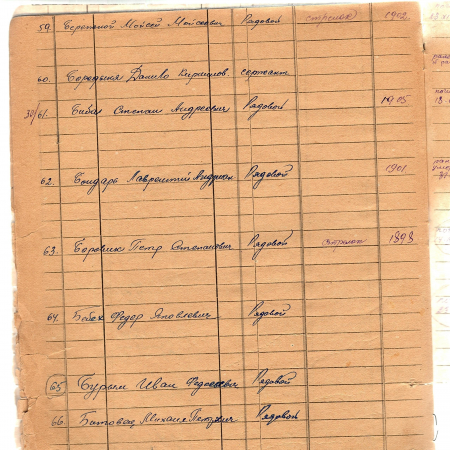 59. Бережной Мойсей Мойсеевич Рядовой стрелок 1902
60. Бородыня Данило Кириллов. сержант
30/61. Бибик Степан Андреевич Рядовой 1905
62. Бондарь Лаврентий Андреев Рядовой 1901
63. Боровик Петр Степанович Рядовой стрелок 1893
64. Бебех Федор Яковлевич Рядовой
65 Бурым Иван Федосеевич Рядовой
66. Битовод Михаил Петрович Рядовой